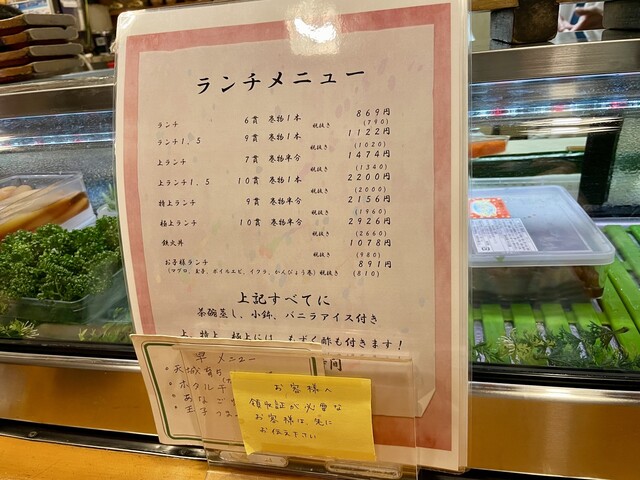 ランチメニュー
ランチ 6貫 巻物1本 869円
税抜き (790)
ランチ1,5 9貫 巻物1本 1122円
税抜き (1020)
上ランチ 7貫 巻物半分 1474円
税抜き (1340)
上ランチ1,5 10貫 巻物1本 2200円
税抜き (2000)
特上ランチ 9貫 巻物半分 2156円
税抜き (1960)
極上ランチ 10貫 巻物半分 2926円
税抜き (2660)
鉄火丼 1078円
税抜き (980)
お子様ランチ 891円
(マグロ、玉子、ボイルエビ、イクラ、かんぴょう巻) 税抜き (810)
上記すべてに
茶碗蒸し、小鉢、バニラアイス付き
上、特上、極上には、もずく酢も付きます!
メニュー
ホタル
あな
玉子
お客様へ
領収証が必要な
お客様は、先に
お伝え下さい